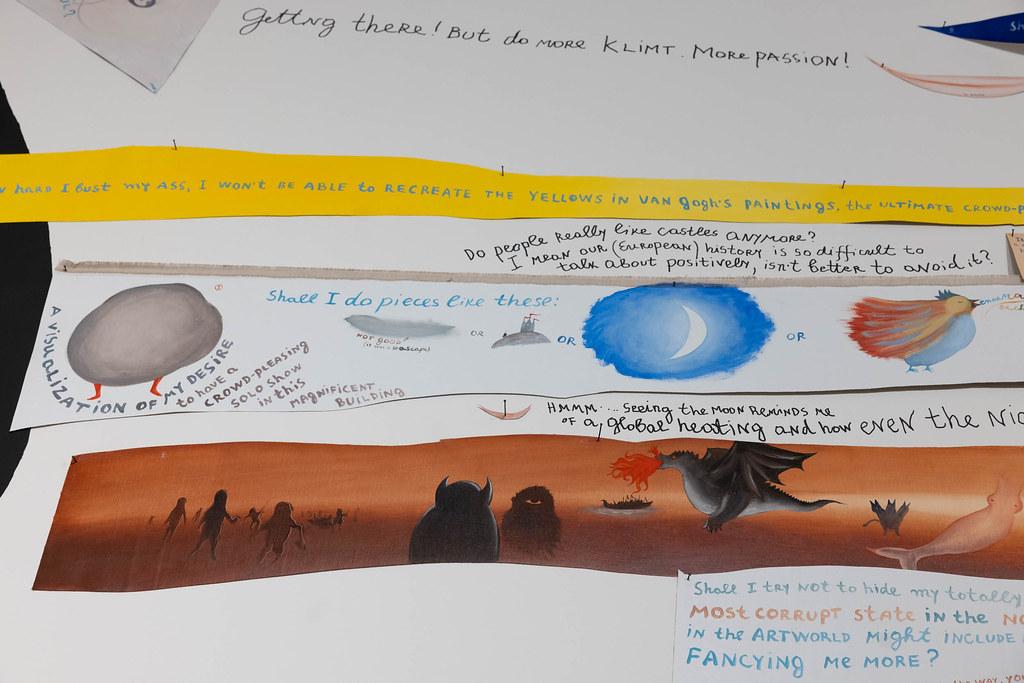 Getting there! But do more KLIMT. More passion!
hard I bust my ass, I won't be able to recreate the yellows in Van Gogh's paintings, the ultimate crowd-p
Do people really like castles anymore?
I mean our (European) history is so difficult to
talk about positively, isn't better to avoid it?
Shall I do pieces like these:
NOT GOOD!
OR
OR
OR
A VISUALIZATION OF MY DESIRE
to have a
CROWD-PLEASING
SOLO SHOW
in this
MAGNIFICENT
BUILDING
HMMM.... seeing the moon reminds me
of a, global heating and how even the Nig
Shall I try not to hide my totally
MOST CORRUPT STATE in the NO
in the ARTWORLD might INCLUDE
FANCYING ME MORE?